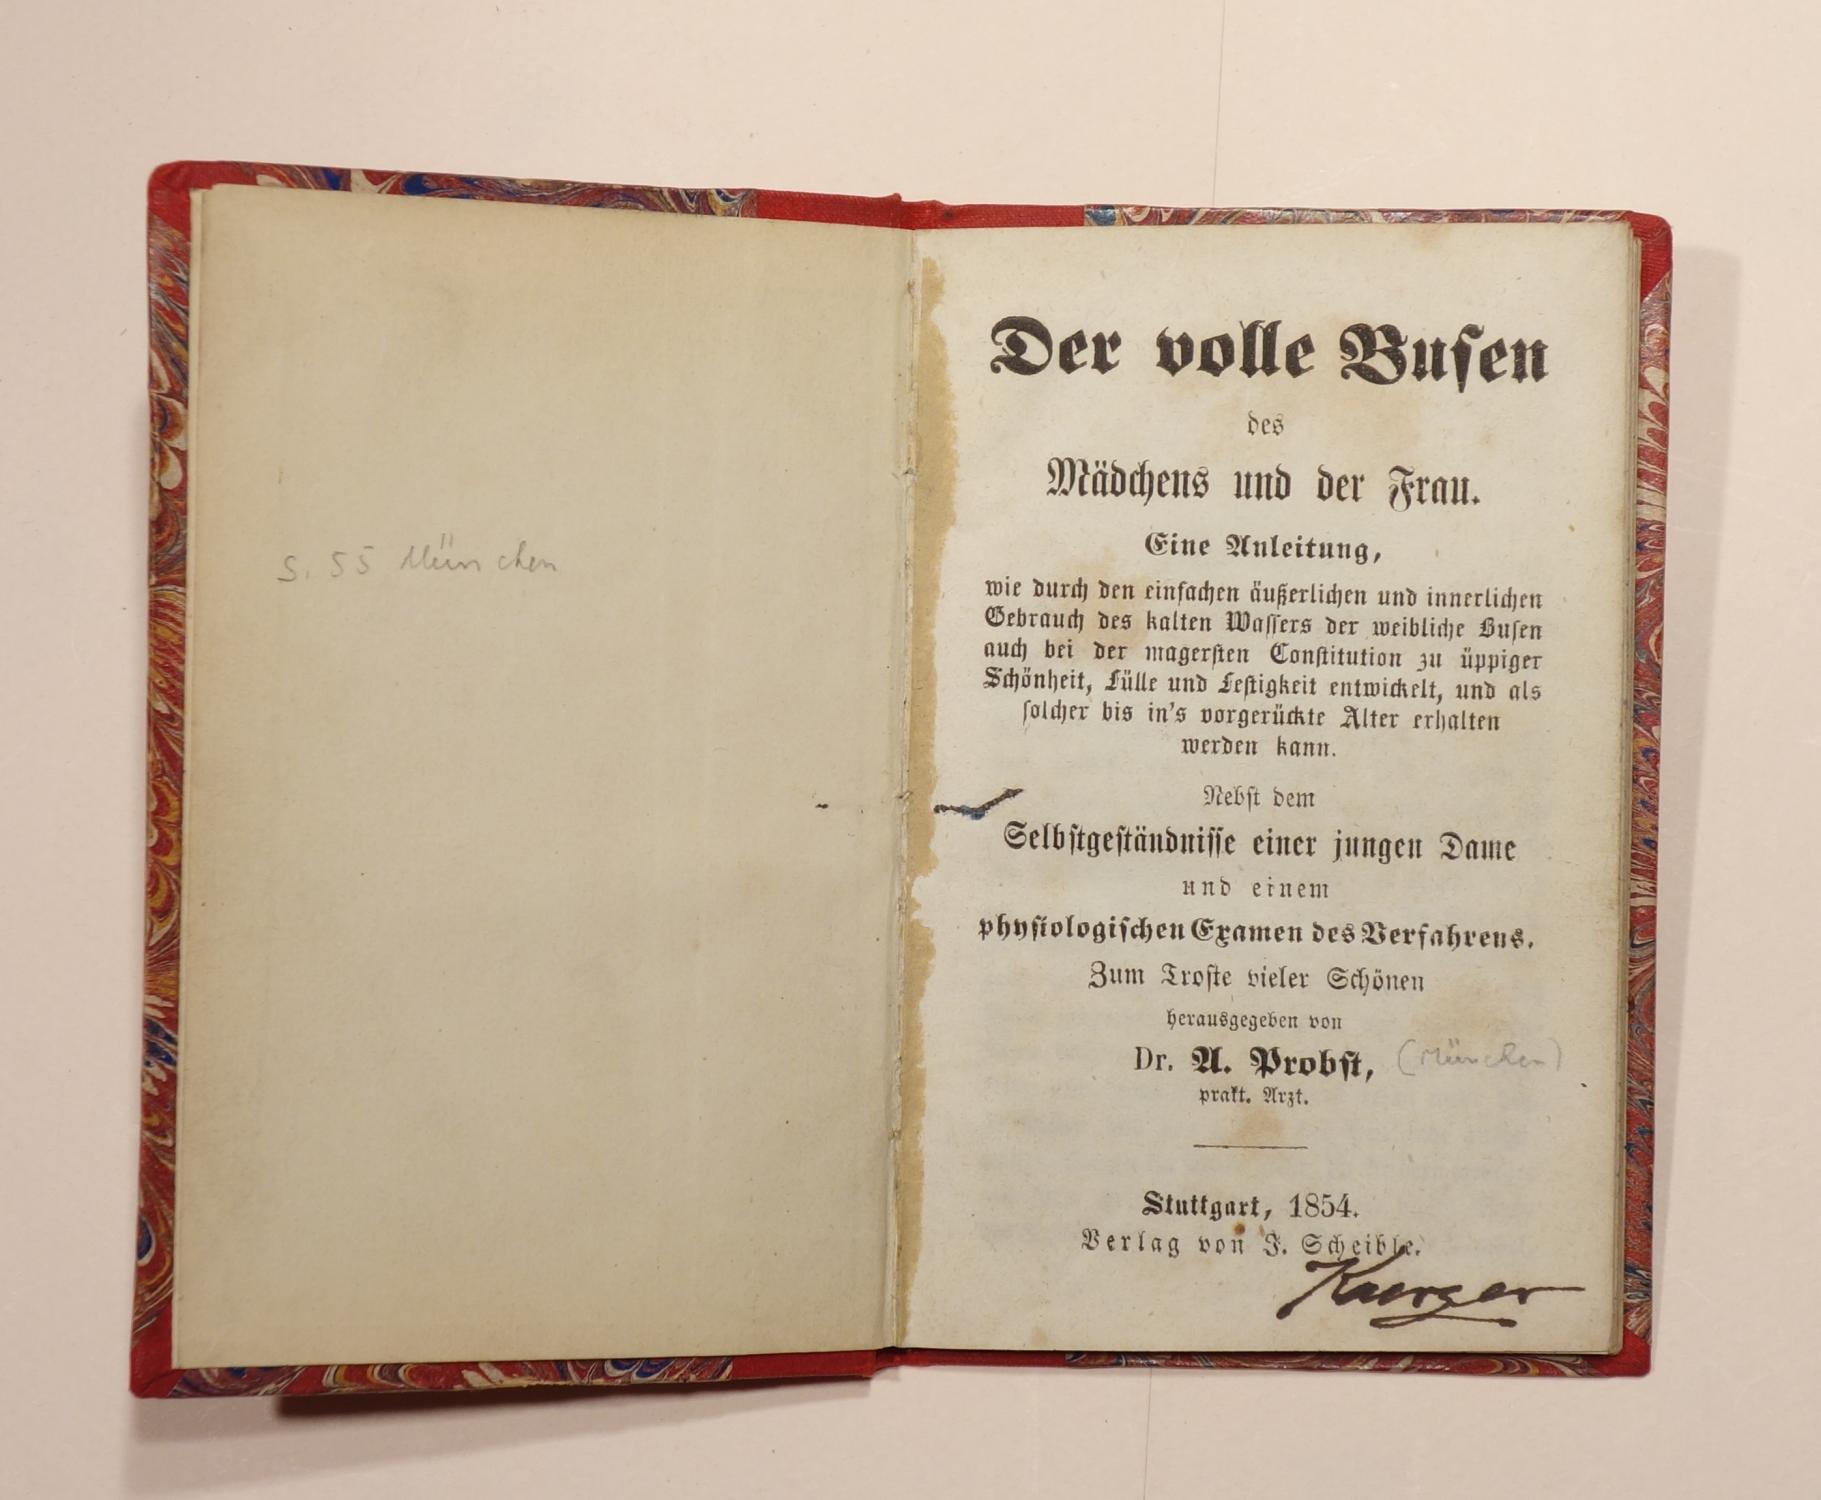 S. 55 München
Der volle Busen
des
Mädchens und der Frau.
Eine Anleitung,
wie durch den einfachen äußerlichen und innerlichen
Gebrauch des kalten Wassers der weibliche Busen
auch bei der magersten Constitution zu üppiger
Schönheit, Fülle und Festigkeit entwickelt, und als
solcher bis in's vorgerückte Alter erhalten
werden kann.
Nebst dem
Selbstgeständnisse einer jungen Dame
und einem
physiologischen Examen des Verfahrens.
Zum Troste vieler Schönen
herausgegeben von
Dr. A. Probst, (München)
prakt. Arzt.
Stuttgart, 1854.
Verlag von J. Scheible.
Kaerger